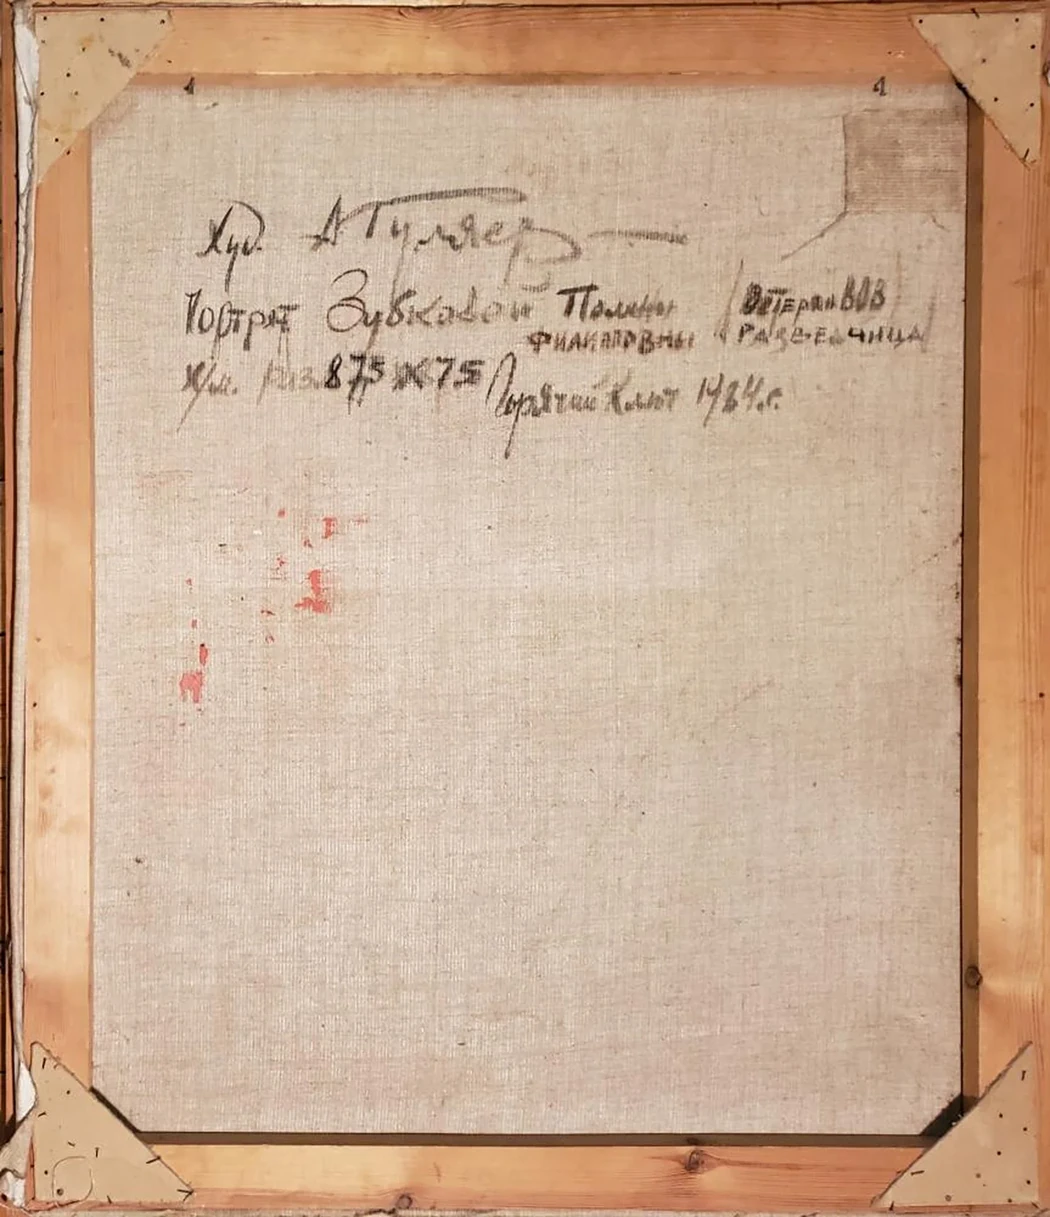 Худ. А Гуляев
Портрет Зубковой Полины (Ветеран ВОВ
Филипповны разведчица)
Х/м. раз. 87,5 х 75 Горячий Ключ 1984 г.